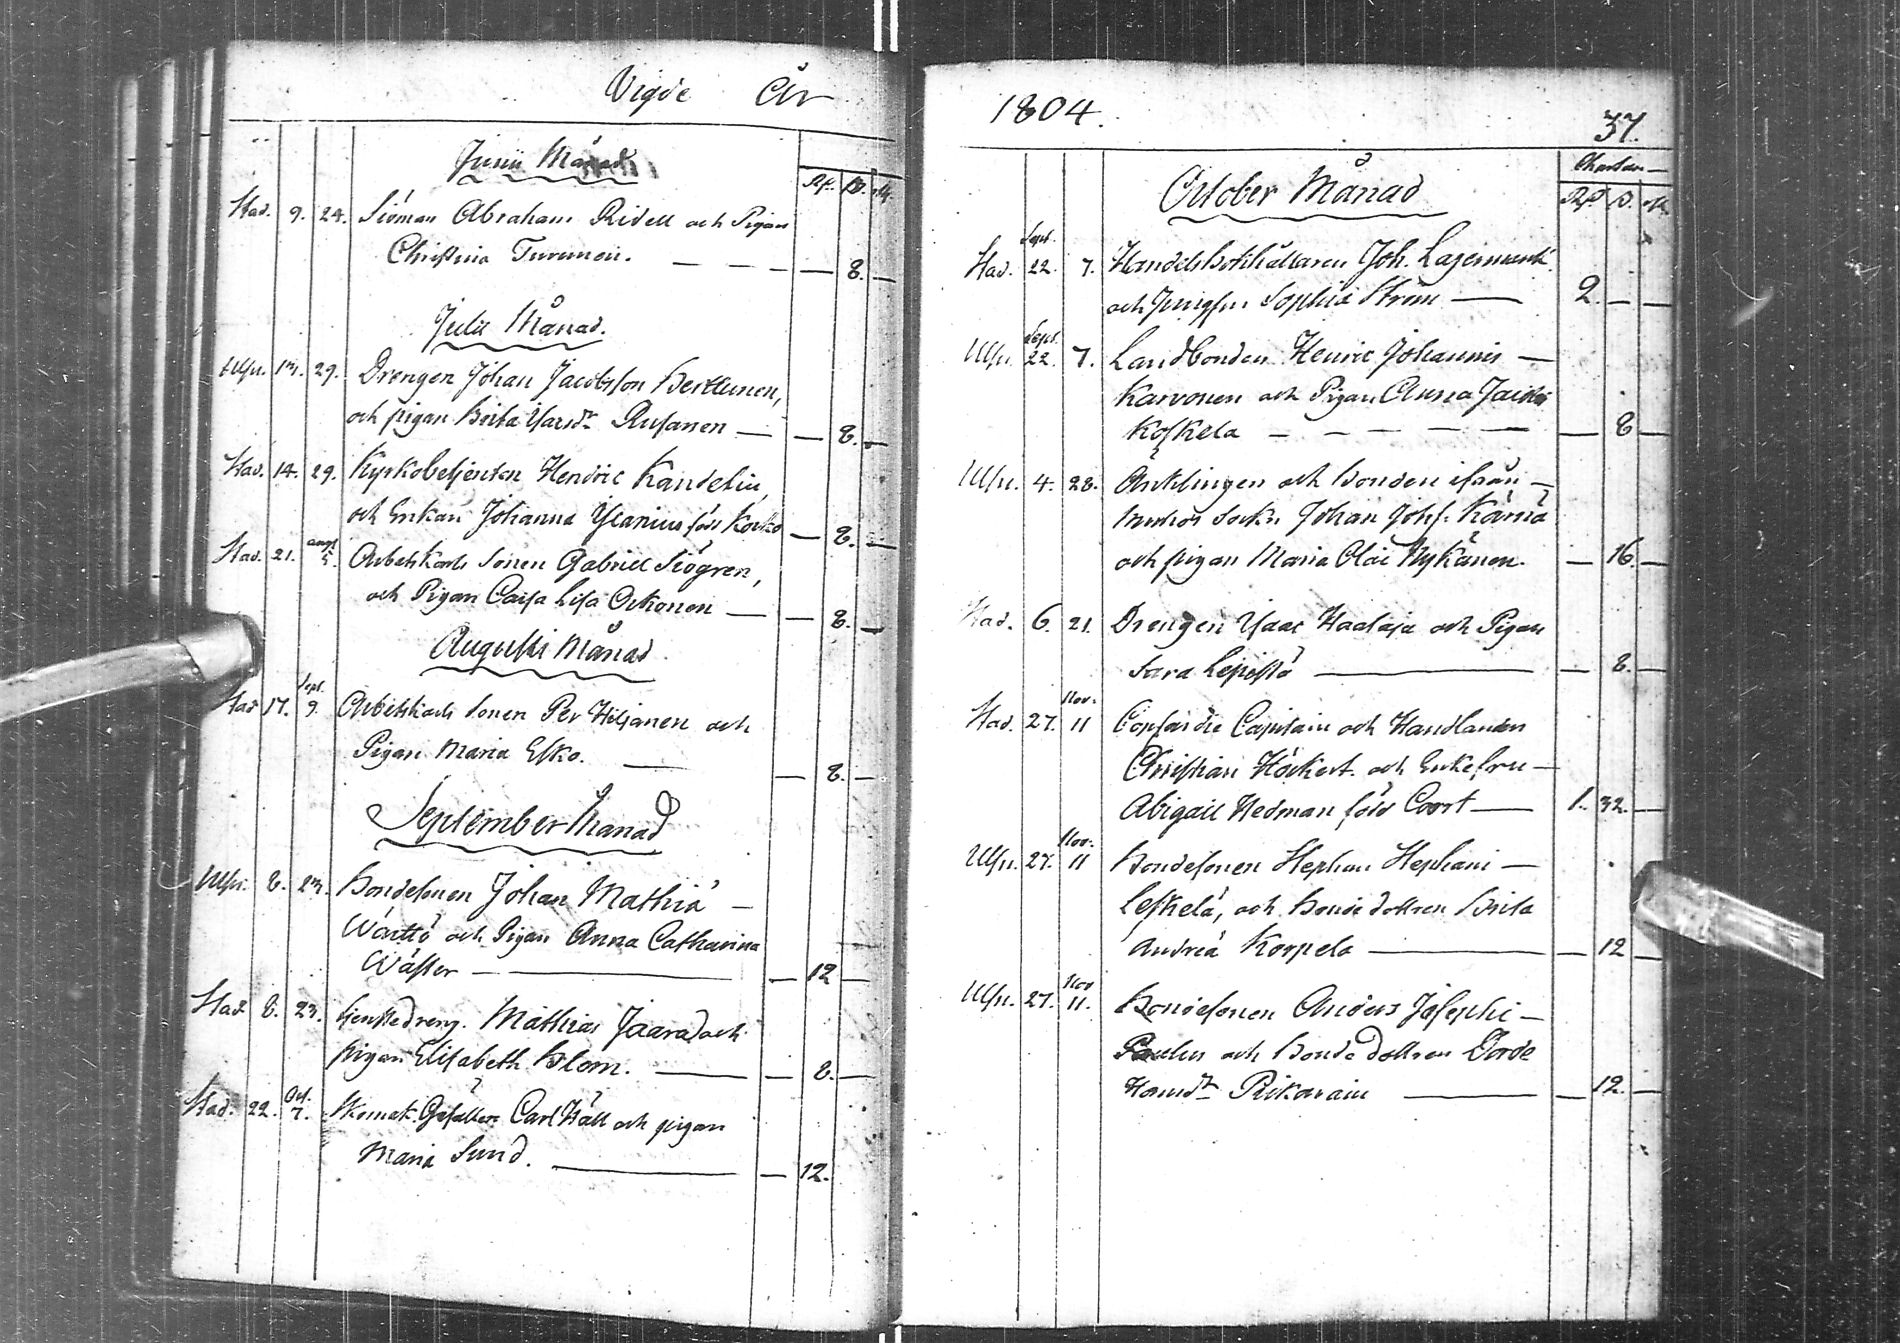 Vigde År
Junii Månad
Rf. ß.
Stad. 9. 24. Siöman Abraham Ridell och Pigan
Christina Turunen. — — — 8. —
Julii Månad.
Ulfu. 13. 29. Drengen Johan Jacobsson Herttunen,
och pigan Brita Isaacsdr Rusanen — — 8. —
Stad. 14. 29. Kyrkobetjenten Hendric Kandelin
och Enkan Johanna Ylanius född Korko — 8. —
Stad. 21. aug. 5. Arbetskarls Sonen Gabriel Siögren,
och Pigan Caisa Lisa Oikonen — — 8. —
Augusti Månad
Stad 17. Sept. 9. Arbetskarls Sonen Per Hiljanen och
Pigan Maria Esko. — — 8. —
September Månad
Ulfu. 8. 23. Bondesonen Johan Mathiæ —
Wänttö och Pigan Anna Catharina
Wäster — — 12 —
Stad. 8. 23. tjenstedreng. Mathias Jaara och
pigan Elisabeth Blom. — — 8. —
Stad. 22. Oct. 7. Skomak. Gesällen Carl Häll och pigan
Maria Sund. — — 12.
1804. 37.
October Månad
Rf. ß.
Stad. Sept. 22. 7. Handelsbokhållaren Joh. Lagermark
och Jungfru Sophia Ström — 2. — —
Ulfu. Sept. 22. 7. Landbonden Henric Johannis —
Karvonen och Pigan Anna
Koskela — — — — — 8 —
Ulfu. 4. 28. Enklingen och Bonden ifrån —
Muhos Sockn Johan Johs. Kärnä
och pigan Maria Olai Nykänen. — 16. —
Stad. 6. 21. Drengen Isaac Haataja och Pigan
Sara Lepistö — — 8. —
Stad. 27. Nov. 11 Copfardie Capitain och Handlanden
Christian Höckert och Enkefru —
Abigail Hedman född Coort — 1. 32. —
Ulfu. 27. Nov. 11 Bondesonen Stephan Stephani —
Leskelä, och Bonde dottren Brita
Andreæ Korpela — — 12 —
Ulfu. 27. Nov 11. Bondesonen Anders Josephi —
och Bonde dottren Dorde
Pikarain — — 12. —